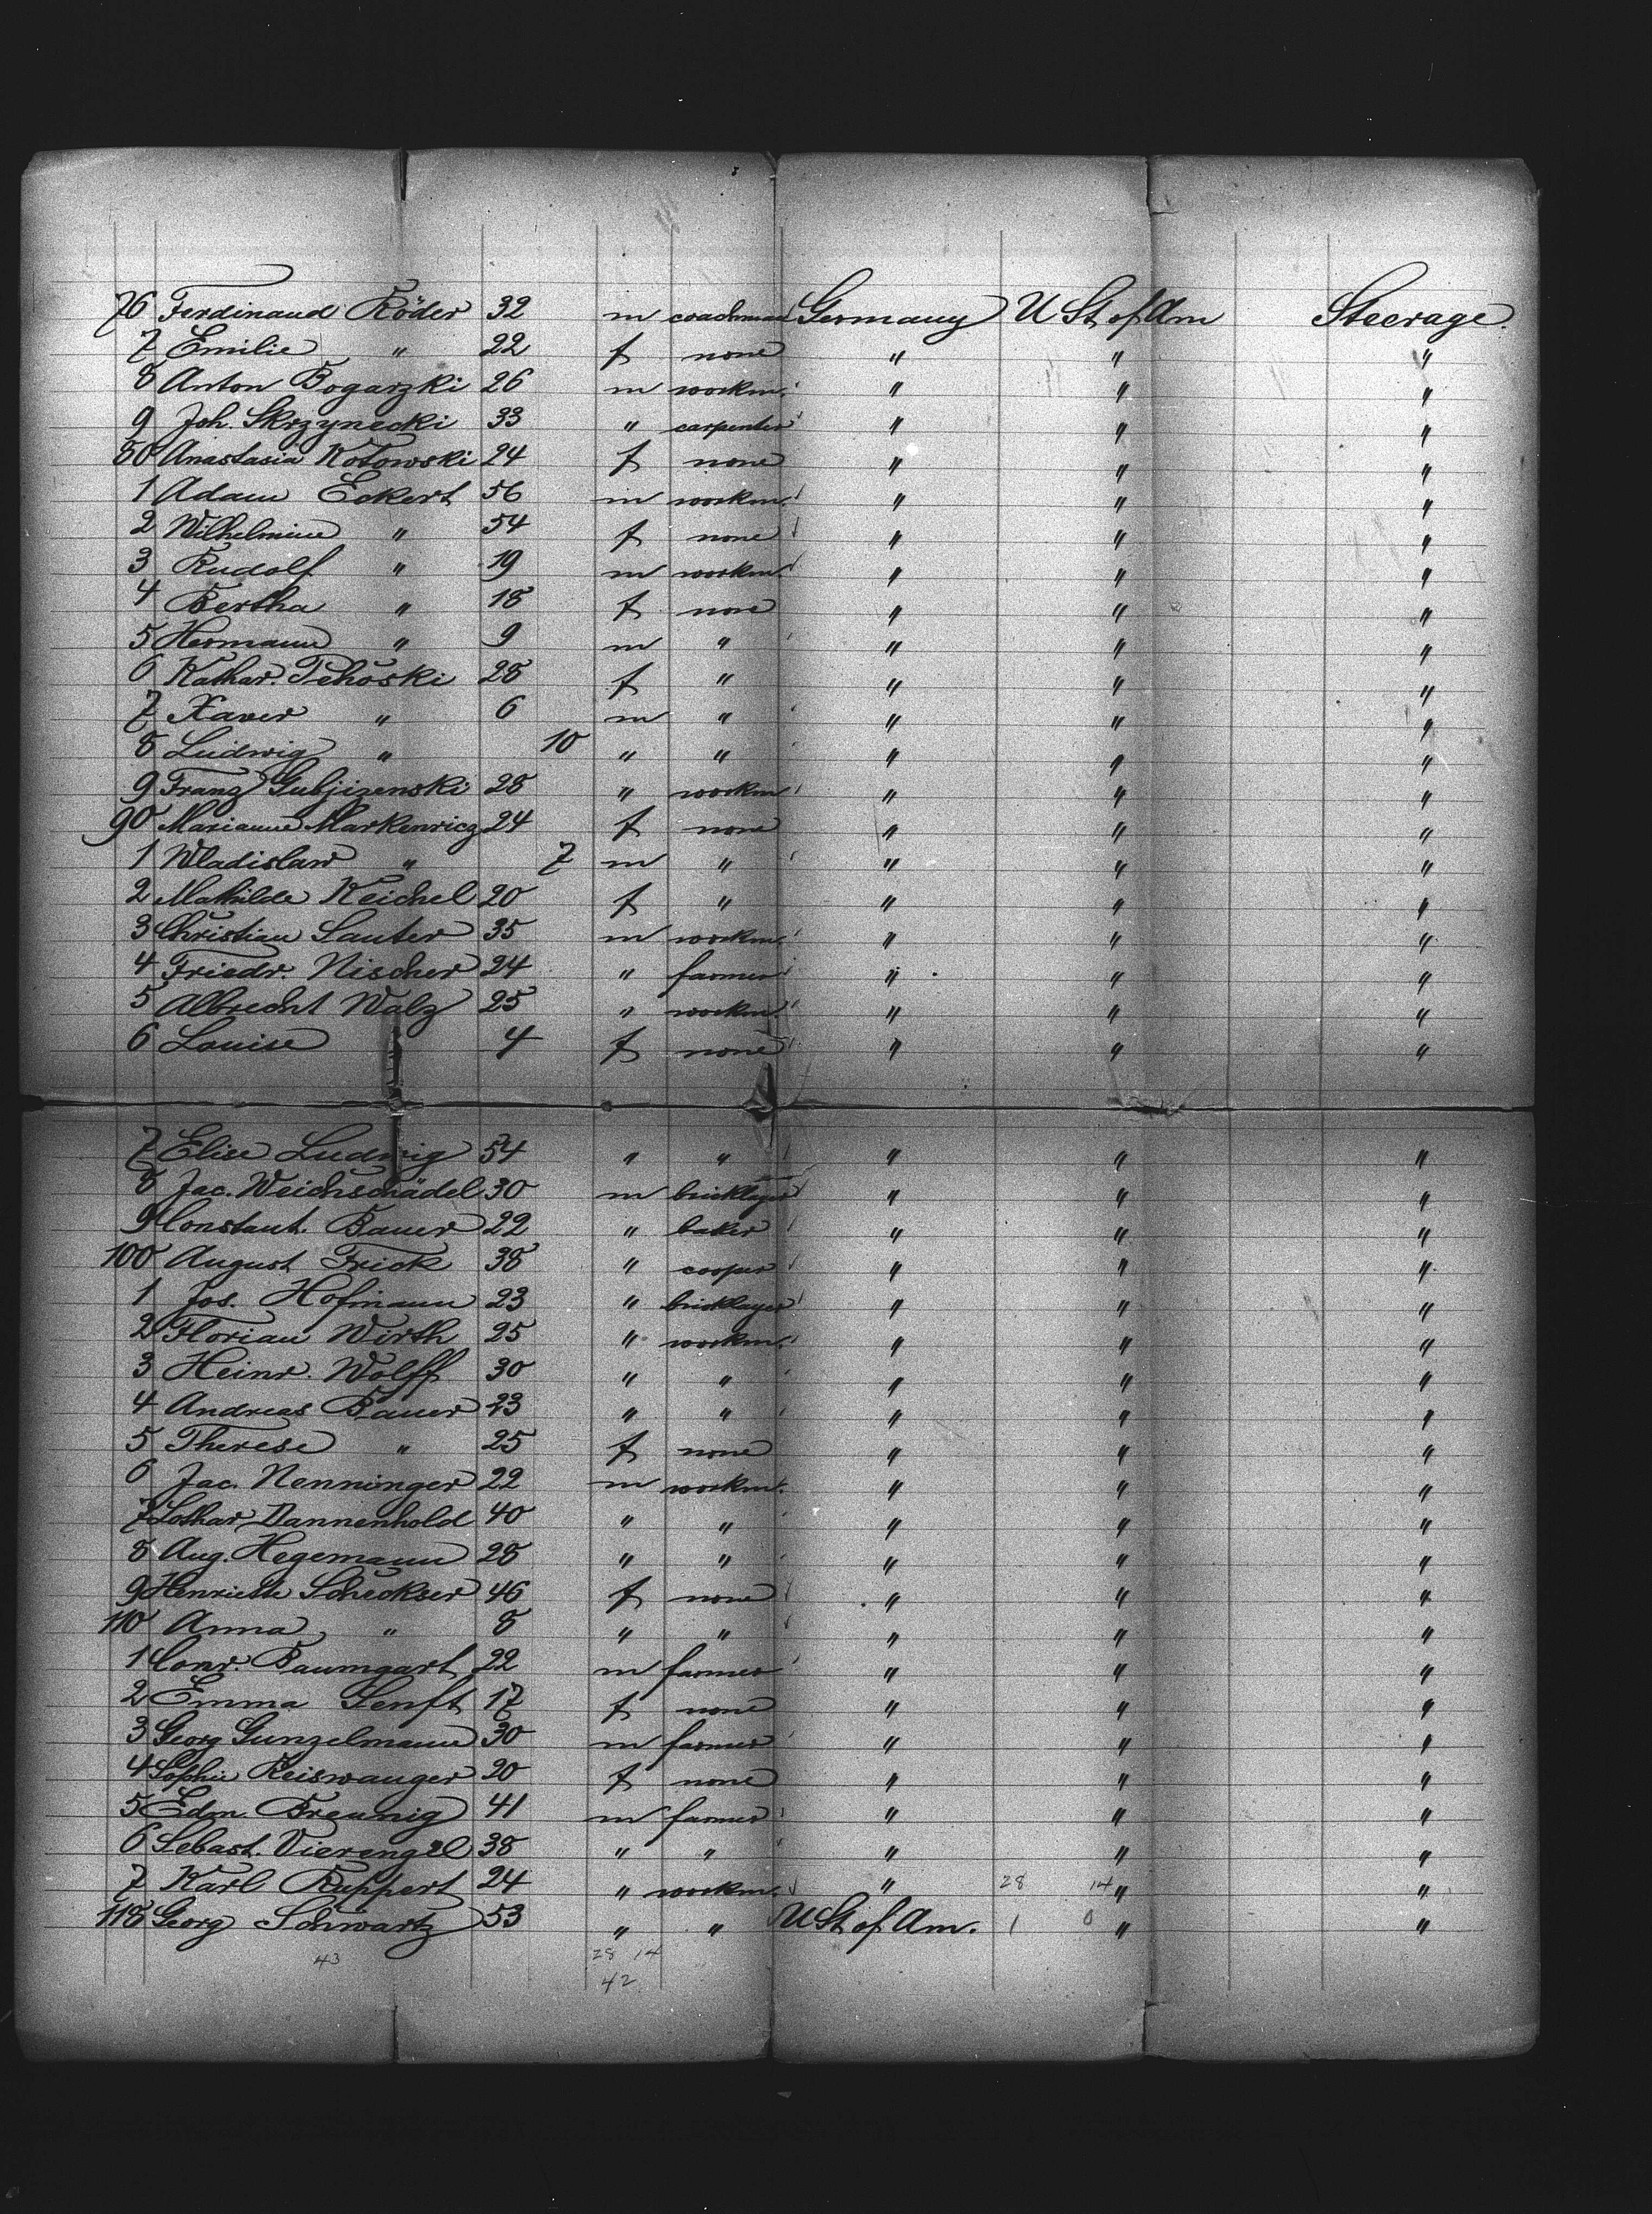 76 Ferdinand Röder 32 m coachman Germany U St of Am Steerage.
7 Emilie " 22 f none " " "
8 Anton Bogarzki 26 m workm. " " "
9 Joh. Skrzynecki 33 " carpenter " " "
80 Anastasia Kotowski 24 f none " " "
1 Adam Eckert 56 m workm. " " "
2 Wilhelmine " 54 f none " " "
3 Rudolf " 19 m workm. " " "
4 Bertha " 18 f none " " "
5 Hermann " 9 m " " " "
6 Kathar. Pehoski 28 f " " " "
7 Xaver " 6 m " " " "
8 Ludwig " 10 " " " " "
9 Franz Gubjizenski 28 " workm " " "
90 Marianne Markenricz 24 f none " " "
1 Wladislaw " 7 m " " " "
2 Mathilde Reichel 20 f " " " "
3 Christian Sauter 35 m workm. " " "
4 Friedr. Nischer 24 " farmer " " "
5 Albrecht Walz 25 " workm. " " "
6 Louise 4 f none " " "
7 Elise Ludwig 54 " " " " "
8 Jac. Weichschädel 30 m bricklayer " " "
9 Constant. Bauer 22 " baker " " "
100 August Frick 38 " cooper " " "
1 Jos. Hofmann 23 " bricklayer " " "
2 Florian Wirth 25 " workm. " " "
3 Heinr. Wolff 30 " " " " "
4 Andreas Bauer 23 " " " " "
5 Therese " 25 f none " " "
6 Jac. Nenninger 22 m workm. " " "
7 Lothar Dannenhold 40 " " " " "
8 Aug. Hegemann 28 " " " " "
9 Henriette Scheckser 46 f none " " "
110 Anna " 8 " " " " "
1 Conr. Baumgart 22 m farmer " " "
2 Emma Senft 17 f none " " "
3 Georg Gunzelmann 30 m farmer " " "
4 Sophie Reiswanger 20 f none " " "
5 Edm. Breunig 41 m farmer " " "
6 Sebast. Vierengel 38 " " " " "
7 Karl Ruppert 24 " workm. " 28 14 " "
118 Georg Schwartz 53 " " U St of Am. 1 0 " "
43 28 14
42